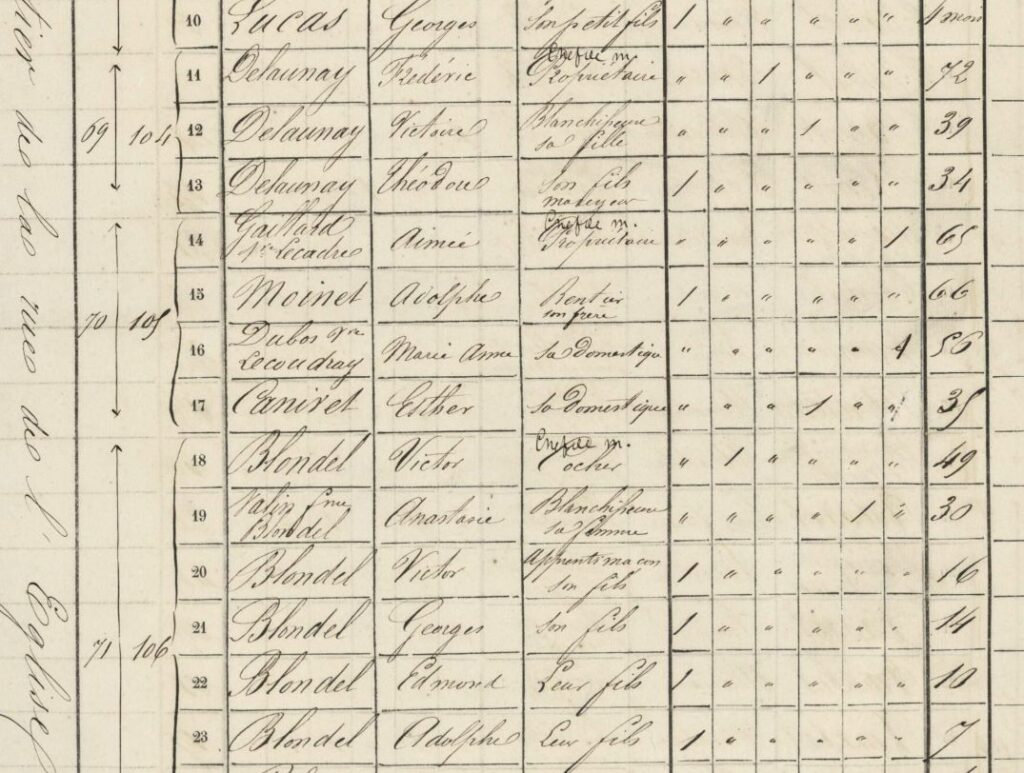 10 Lucas Georges Son petit fils 1 " " " " " 4 mois
Chef de m.
11 Delaunay Frédéric Propriétaire " " 1 " " " 72
69 104 12 Delaunay Victoire Blanchisseuse " " " 1 " " 39
sa fille
13 Delaunay Théodore son fils 1 " " " " " 34
mareyeur
Gaillard Chef de m.
14 Vve Lecadre Aimée Propriétaire " " " " " 1 65
70 105 15 Moinet Adolphe Rentier 1 " " " " " 66
son frère
16 Dubos Vve Marie Anne sa domestique " " " " " 1 56
Lecoudray
17 Canivet Esther sa domestique " " " 1 " " 35
Chef de m.
18 Blondel Victor Cocher " 1 " " " " 49
19 Valin fme Anastasie Blanchisseuse " " " " 1 " 30
Blondel sa femme
20 Blondel Victor Apprenti maçon 1 " " " " " 16
son fils
21 Blondel Georges son fils 1 " " " " " 14
71 106 22 Blondel Edmond Leur fils 1 " " " " " 10
23 Blondel Adolphe Leur fils 1 " " " " " 7
rue de l'Eglise